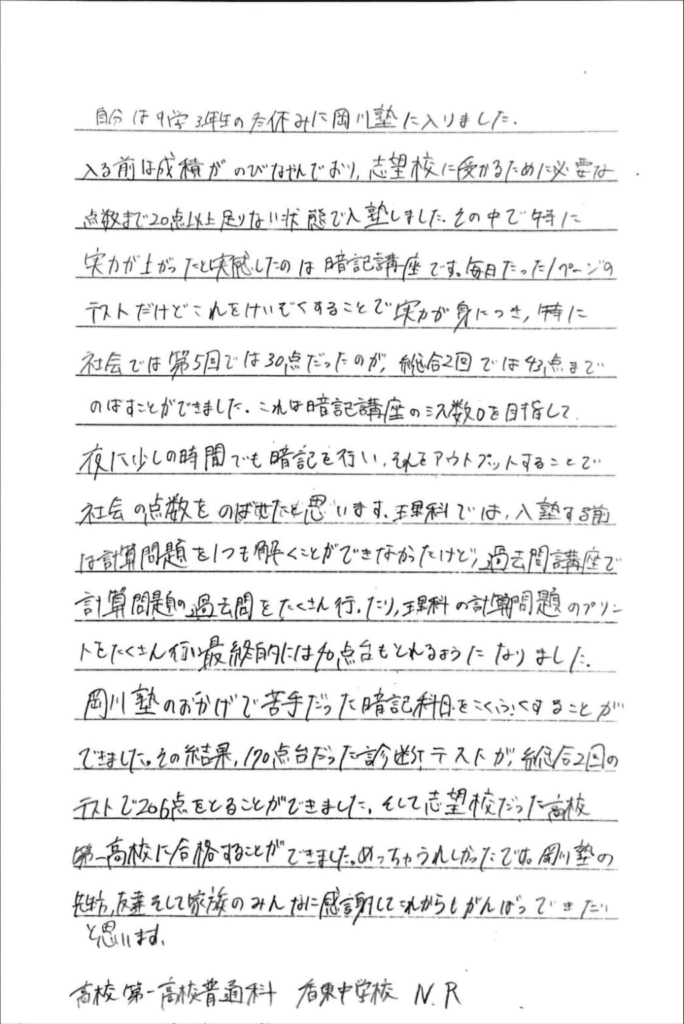 自分は中学3年生の冬休みに岡川塾に入りました.
入る前は成積がのびなやんでおり,志望校に受かるために必要な
点数まで20点以上足りない状態で入塾しました.その中で特に
実力が上がったと実感したのは暗記講座です。毎日たった1ページの
テストだけどこれをけいぞくすることで実力が身につき,特に
社会では第5回では30点だったのが,総合2回では43点まで
のばすことができました.これは暗記講座のミス数0を目指して
夜に少しの時間でも暗記を行い,それをアウトプットすることで
社会の点数をのばせたと思います.理科では,入塾する前
は計算問題を1つも解くことができなかったけど,過去問講座で
計算問題の過去問をたくさん行ったり,理科の計算問題のプリン
トをたくさん行い最終的には40点台もとれるようになりました.
岡川塾のおかげで苦手だった暗記科目をこくふくすることが
できました。その結果,170点台だった診断テストが,総合2回の
テストで206点をとることができました.そして志望校だった高松
第一高校に合格することができました。めっちゃうれしかったです。岡川塾の
先生方,友達そして家族のみんなに感謝してこれからもがんばっていきたい
と思います.
高松第一高校普通科 香東中学校 N.R